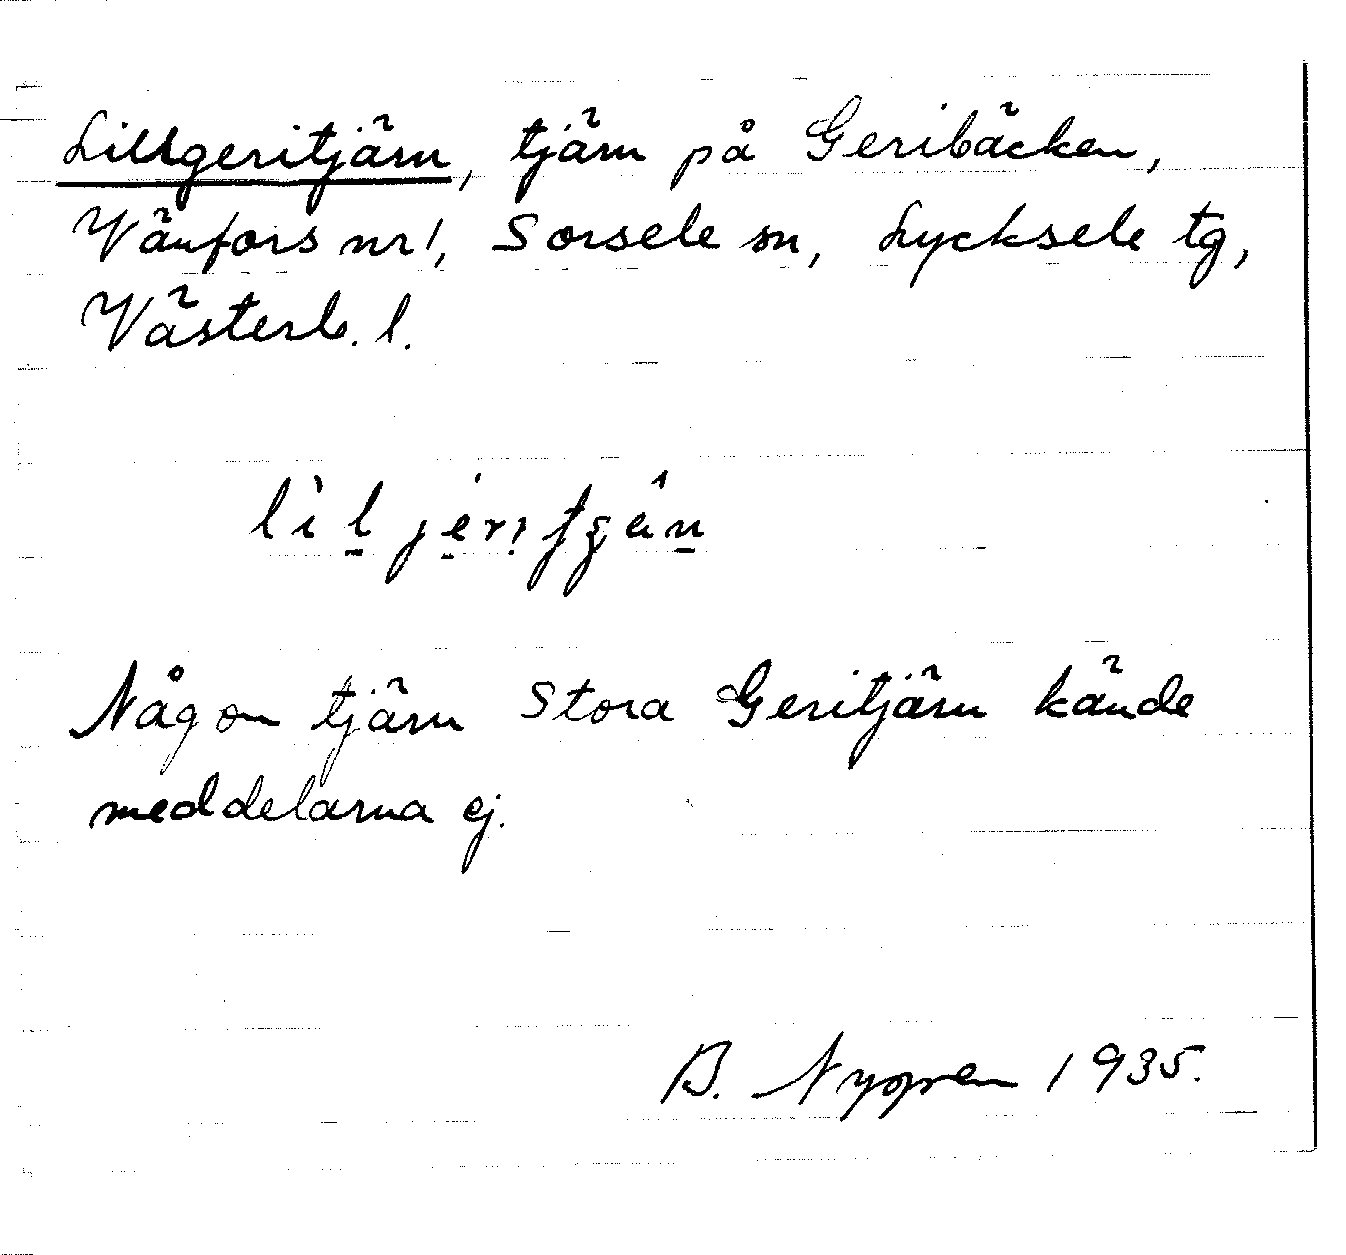 Lillgeritjärn, tjärn på Geribäcken,
Vänfors nr 1, Sorsele sn, Lycksele tg,
Västerb. l.
Någon tjärn Stora Geritjärn kände
meddelarna ej.
B. Nygren 1935.